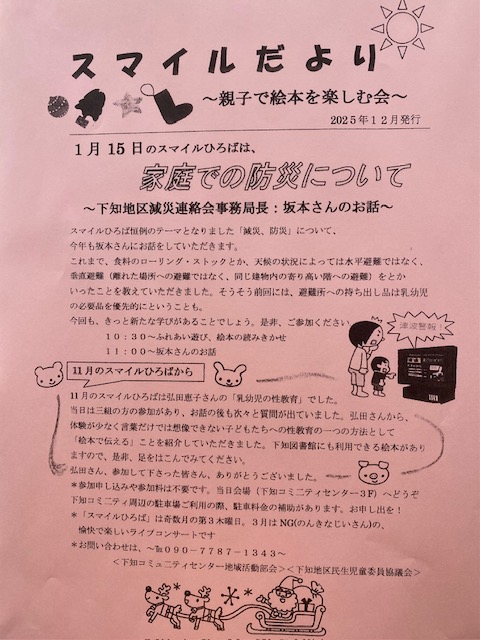 スマイルだより
～親子で絵本を楽しむ会～
2025年12月発行
1月15日のスマイルひろばは、
家庭での防災について
～下知地区減災連絡会事務局長：坂本さんのお話～
スマイルひろば恒例のテーマとなりました「減災、防災」について、
今年も坂本さんにお話をしていただきます。
これまで、食料のローリング・ストックとか、天候の状況によっては水平避難ではなく、
垂直避難（離れた場所への避難ではなく、同じ建物内の寄り高い階への避難）をとか
いったことを教えていただきました。そうそう前回には、避難所への持ち出し品は乳幼児
の必要品を優先的にということも。
今回も、きっと新たな学びがあることでしょう。是非、ご参加ください
10:30～ふれあい遊び、絵本の読みきかせ
11:00～坂本さんのお話
津波警報！
11月のスマイルひろばから
11月のスマイルひろばは弘田恵子さんの「乳幼児の性教育」でした。
当日は三組の方の参加があり、お話の後も次々と質問が出ていました。弘田さんから、
体験が少なく言葉だけでは想像できない子どもたちへの性教育の一つの方法として
「絵本で伝える」ことを紹介していただきました。下知図書館にも利用できる絵本があり
ますので、是非、足をはこんでみてください。
弘田さん、参加して下さった皆さん、ありがとうございました。
＊参加申し込みや参加料は不要です。当日会場（下知コミニ二ティセンター３F）へどうぞ
下知コミニ二ティ周辺の駐車場ご利用の際、駐車料金の補助があります。お申し出を！
＊「スマイルひろば」は奇数月の第３木曜日。３月はNG(のんきなじいさん)の、
愉快で楽しいライブコンサートです
＊お問い合わせは、～℡090-7787-1343～
＜下知コミュニティセンター地域活動部会＞＜下知地区民生児童委員協議会＞